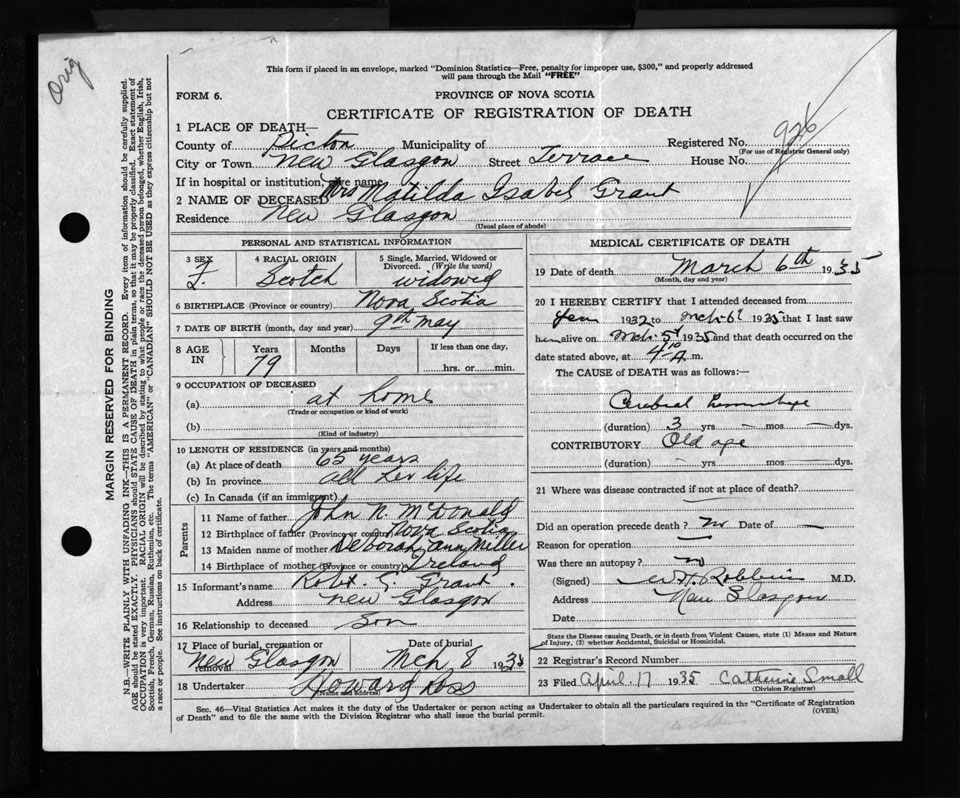 Orig
This form if placed in an envelope, marked "Dominion Statistics—Free, penalty for improper use, $300," and properly addressed
will pass through the Mail "FREE"
FORM 6.
PROVINCE OF NOVA SCOTIA
CERTIFICATE OF REGISTRATION OF DEATH
1 PLACE OF DEATH—
County of Pictou Municipality of Registered No. 926
(For use of Registrar General only)
City or Town New Glasgow Street Terrace House No.
If in hospital or institution, give name
2 NAME OF DECEASED Mrs Matilda Isabel Grant
Residence New Glasgow
(Usual place of abode)
PERSONAL AND STATISTICAL INFORMATION
3 SEX F.
4 RACIAL ORIGIN Scotch
5 Single, Married, Widowed or Divorced. (Write the word) widowed
6 BIRTHPLACE (Province or country) Nova Scotia
7 DATE OF BIRTH (month, day and year) 9th May
8 AGE IN Years Months Days If less than one day,
79 hrs. or min.
9 OCCUPATION OF DECEASED
(a) at home
(Trade or occupation or kind of work)
(b)
(Kind of industry)
10 LENGTH OF RESIDENCE (in years and months)
(a) At place of death 65 years
(b) In province all her life
(c) In Canada (if an immigrant)
Parents
11 Name of father John N. McDonald
12 Birthplace of father (Province or country) Nova Scotia
13 Maiden name of mother Deborah Ann Miller
14 Birthplace of mother (Province or country) Ireland
15 Informant's name Robt. C. Grant.
Address New Glasgow
16 Relationship to deceased Son
17 Place of burial, cremation or removal New Glasgow
Date of burial Mch 8 1935
18 Undertaker Howard Ross
(Name and address)
MEDICAL CERTIFICATE OF DEATH
19 Date of death March 6th 1935
(Month, day and year)
20 I HEREBY CERTIFY that I attended deceased from
1932 to Mch. 6th 1935 that I last saw
her alive on Mch. 5th 1935 and that death occurred on the
date stated above, at 4 10 A m.
The CAUSE of DEATH was as follows:—
Cerebral hemorrhage
(duration) 3 yrs — mos — dys.
CONTRIBUTORY Old age
(duration) — yrs mos dys.
21 Where was disease contracted if not at place of death?
Did an operation precede death? no Date of —
Reason for operation —
Was there an autopsy? no
(Signed) Robbins M.D.
Address New Glasgow
Date
State the Disease causing Death, or in death from Violent Causes, state (1) Means and Nature
of Injury, (2) whether Accidental, Suicidal or Homicidal.
22 Registrar's Record Number
23 Filed April. 17 1935 Catherine Small
(Division Registrar)
Sec. 46—Vital Statistics Act makes it the duty of the Undertaker or person acting as Undertaker to obtain all the particulars required in the "Certificate of Registration
of Death" and to file the same with the Division Registrar who shall issue the burial permit.
(OVER)
MARGIN RESERVED FOR BINDING
N.B.—WRITE PLAINLY WITH UNFADING INK—THIS IS A PERMANENT RECORD. Every item of information should be carefully supplied.
AGE should be stated EXACTLY. PHYSICIANS should STATE CAUSE OF DEATH in plain terms, so that it may be properly classified. Exact statement of
OCCUPATION is very important. RACIAL ORIGIN will be described by stating to what people or race the deceased person belonged, whether English, Irish,
Scottish, French, German, Russian, Ruthenian, etc. The terms "AMERICAN" or "CANADIAN" SHOULD NOT BE USED as they express citizenship but not
a race or people. See instructions on back of certificate.